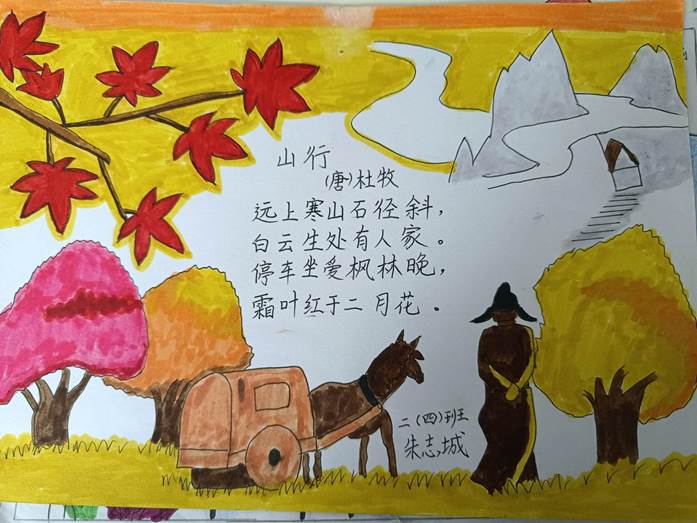 山行
(唐)杜牧
远上寒山石径斜，
白云生处有人家。
停车坐爱枫林晚，
霜叶红于二月花。
二(四)班
朱志城